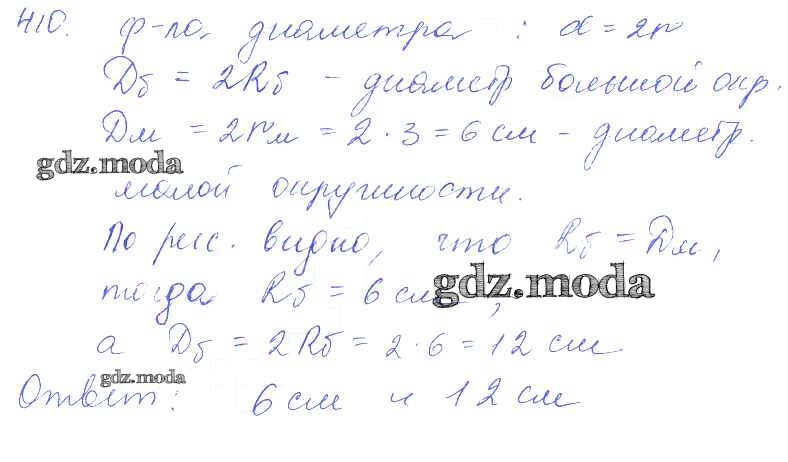 410. ф-ла диаметра : d = 2r
Dб = 2Rб – диаметр большой окр.
Dм = 2rм = 2 · 3 = 6 см – диаметр.
gdz.moda
малой окружности.
По рис. видно, что Rб = Dм,
тогда Rб = 6 см,
gdz.moda
а Dб = 2Rб = 2 · 6 = 12 см.
gdz.moda
Ответ: 6 см и 12 см